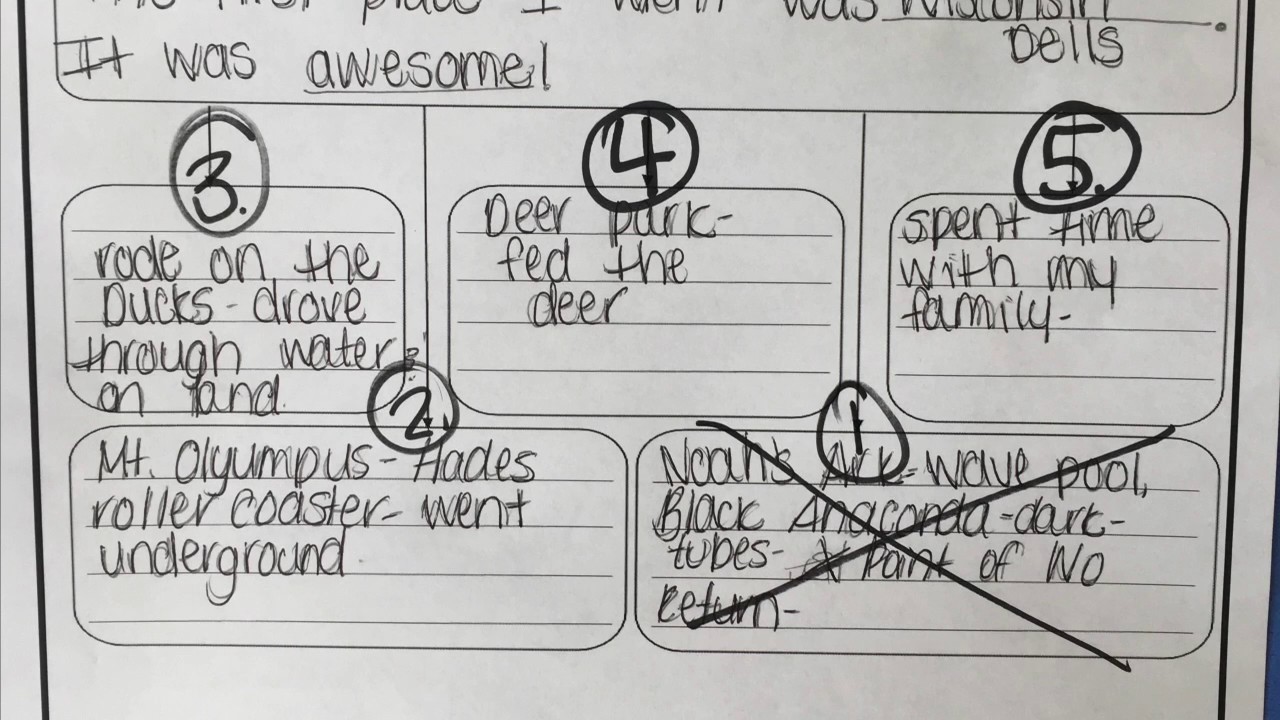 The first place I went was Wisconsin
Dells.
It was awesome!
3.
rode on the
Ducks - drove
through water
on land.
4
Deer park-
fed the
deer
5.
spent time
with my
family-
2.
Mt. Olyumpus - Hades
roller coaster- went
underground.
1
Noah's Ark - wave pool,
Black Anaconda - dark-
tubes- Point of No
Return-